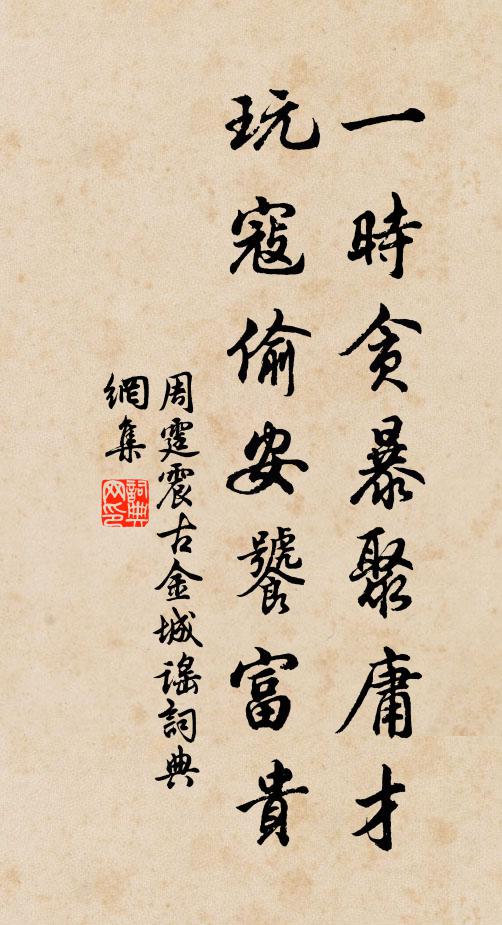 一時貪暴聚庸才
玩寇偷安饕富貴
周霆震古金城謠詞典
網集
詞典
网印